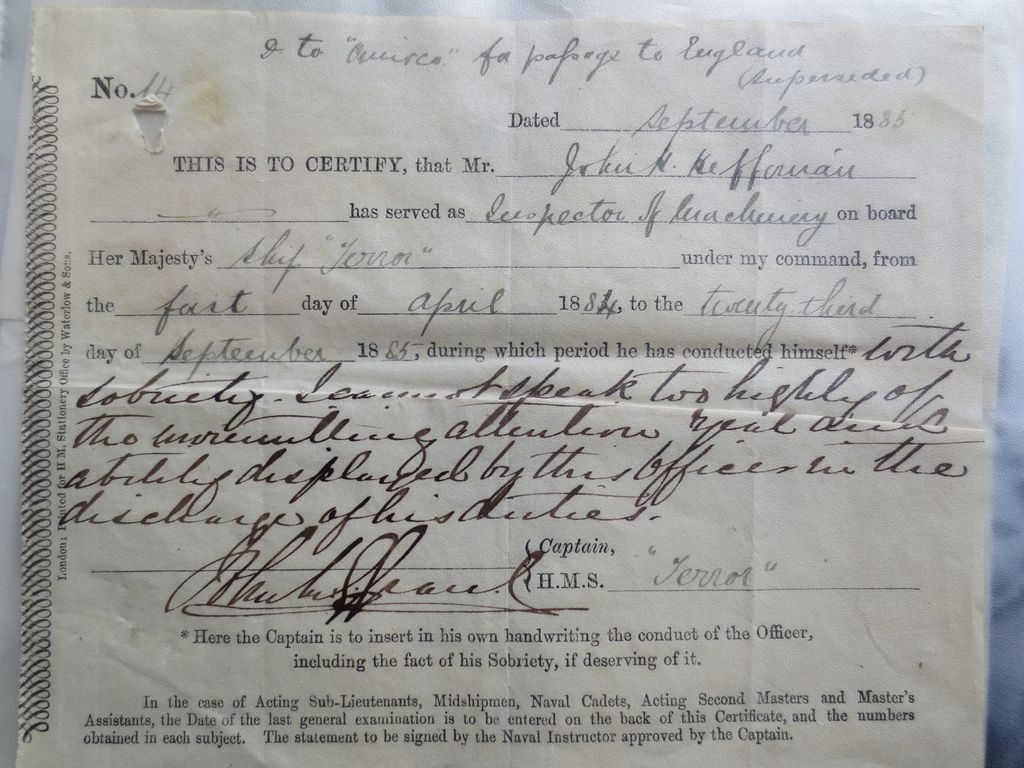 & to "Orisco" for passage to England
(Superseded)
No. 14
Dated September 1885
THIS IS TO CERTIFY, that Mr. John H. Heffernan
has served as Inspector of Machinery on board
Her Majesty's Ship "Terror" under my command, from
the first day of April 1884, to the twenty third
day of September 1885, during which period he has conducted himself* with
sobriety. I cannot speak too highly of
the unremitting attention zeal and
ability displayed by this officer in the
discharge of his duties.
Captain,
H.M.S. "Terror"
* Here the Captain is to insert in his own handwriting the conduct of the Officer,
including the fact of his Sobriety, if deserving of it.
In the case of Acting Sub-Lieutenants, Midshipmen, Naval Cadets, Acting Second Masters and Master's
Assistants, the Date of the last general examination is to be entered on the back of this Certificate, and the numbers
obtained in each subject. The statement to be signed by the Naval Instructor approved by the Captain.
London: Printed for H.M. Stationery Office by Waterlow & Sons.